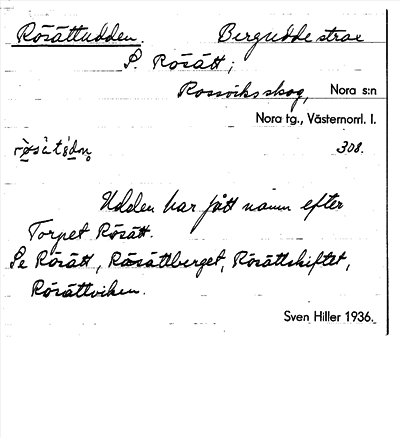 Rösättudden. Bergudde strax
S. Rösätt;
Rossviks skog, Nora s:n
Nora tg., Västernorrl. l.
308.
Udden har fått namn efter
Torpet Rösätt.
Se Rösätt, Rösättberget, Rösättskiftet,
Rösättviken.
Sven Hiller 1936.